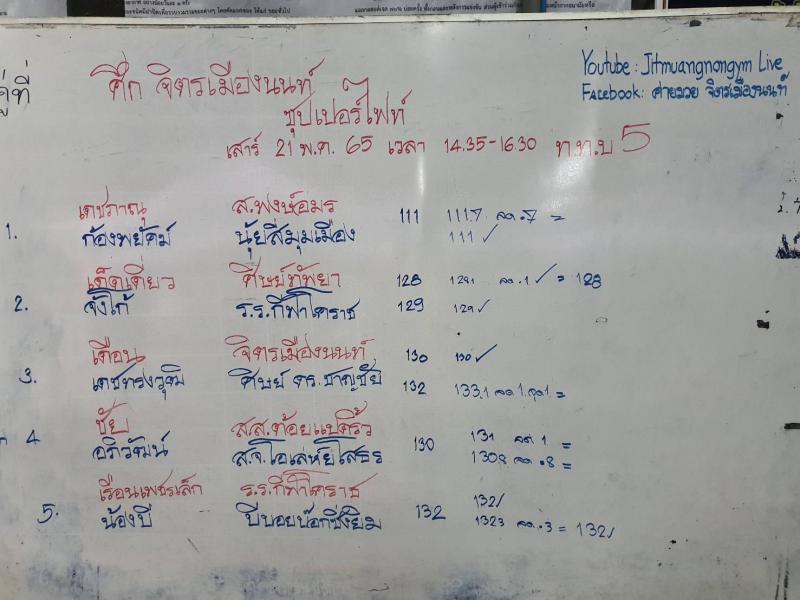 คู่ที่
ศึก จิตรเมืองนนท์
ซุปเปอร์ไฟท์
Youtube : Jitmuangnongym Live
Facebook: ค่ายมวย จิตรเมืองนนท์
เสาร์ 21 พ.ค. 65 เวลา 14.35-16.30 ท.ท.บ 5
เดชภาณุ ส.พงษ์อมร 111 111.7 ลด .7 =
1. ก้องพยัคฆ์ นุ้ยสี่มุมเมือง 111 ✓
เด็ดเดี่ยว ศิษย์ทัพยา 128 129.1 ลด .1 ✓ = 128
2. จังโก้ ร.ร.กีฬาโคราช 129 129 ✓
เดือน จิตรเมืองนนท์ 130 130 ✓
3. เดชทรงวุฒิ ศิษย์ ดร.ชาญชัย 132 133.1 ลด 1.1 =
ชัย ส.ส.ต้อยแปดริ้ว 130 131 ลด 1 =
4 อภิวัฒน์ ส.จ.โอเล่ห์ยโสธร 130.8 ลด .8 =
เรือนเพชรเล็ก ร.ร.กีฬาโคราช 132 ✓
5. น้องบี บีบอยบ๊อกซิ่งยิม 132 132.3 ลด .3 = 132 ✓